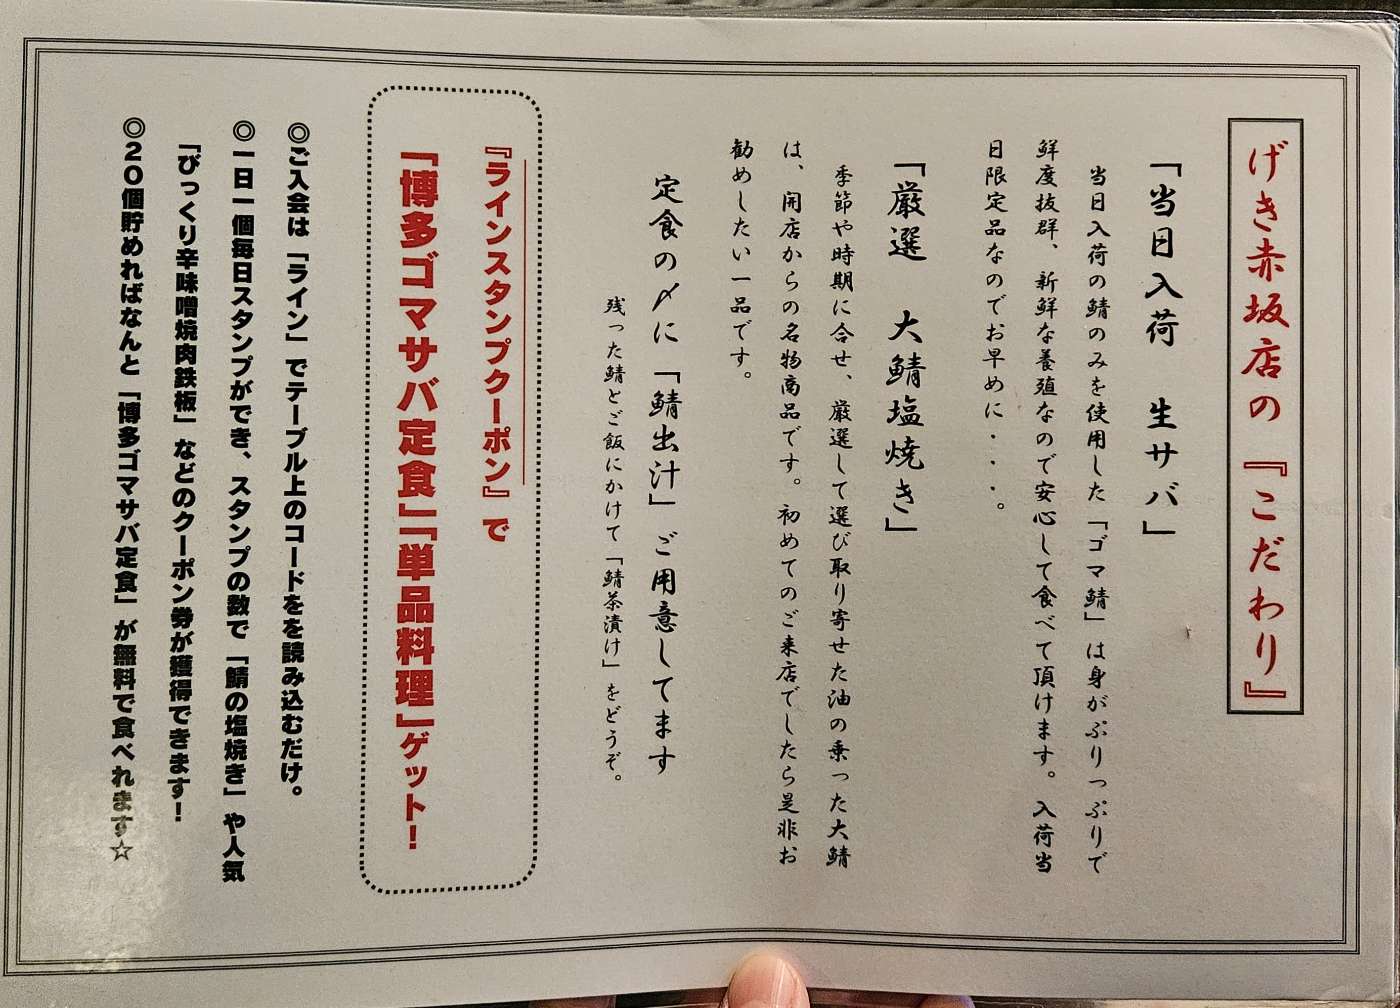 げき赤坂店の『こだわり』
「当日入荷　生サバ」
当日入荷の鯖のみを使用した「ゴマ鯖」は身がぷりっぷりで
鮮度抜群、新鮮な養殖なので安心して食べて頂けます。入荷当
日限定品なのでお早めに・・・。
「厳選　大鯖塩焼き」
季節や時期に合せ、厳選して選び取り寄せた油の乗った大鯖
は、開店からの名物商品です。初めてのご来店でしたら是非お
勧めしたい一品です。
定食の〆に「鯖出汁」ご用意してます
残った鯖とご飯にかけて「鯖茶漬け」をどうぞ。
『ラインスタンプクーポン』で
「博多ゴマサバ定食」「単品料理」ゲット！
◎ご入会は「ライン」でテーブル上のコードをを読み込むだけ。
◎一日一個毎日スタンプができ、スタンプの数で「鯖の塩焼き」や人気
「びっくり辛味噌焼肉鉄板」などのクーポン券が獲得できます！
◎20個貯めればなんと「博多ゴマサバ定食」が無料で食べれます☆